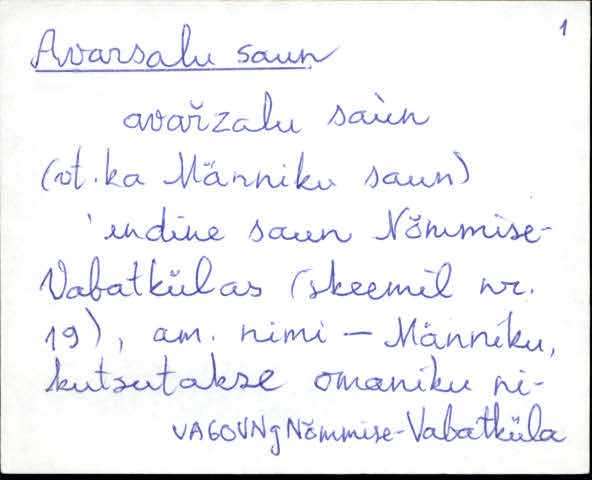 1
Avarsalu saun
avař̌zalu saùn
(vt. ka Männiku saun)
'endine saun Nõmmise-
Vabatkülas (skeemil nr.
19), am. nimi – Männiku,
kutsutakse omaniku ni-
Nõmmise-Vabatküla